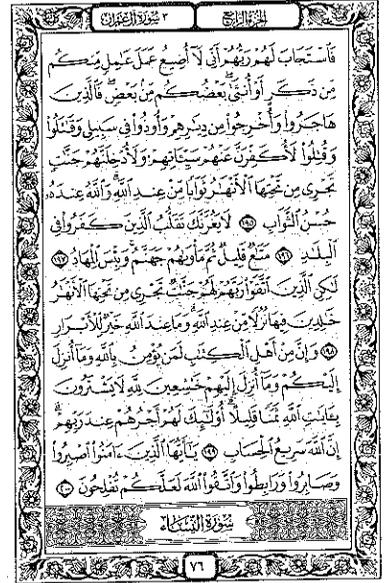 الجزء الرابع
٣ سورة آل عمران
فَٱسْتَجَابَ لَهُمْ رَبُّهُمْ أَنِّى لَآ أُضِيعُ عَمَلَ عَٰمِلٍ مِّنكُم
مِّن ذَكَرٍ أَوْ أُنثَىٰ بَعْضُكُم مِّنۢ بَعْضٍ فَٱلَّذِينَ
هَاجَرُوا۟ وَأُخْرِجُوا۟ مِن دِيَٰرِهِمْ وَأُوذُوا۟ فِى سَبِيلِى وَقَٰتَلُوا۟
وَقُتِلُوا۟ لَأُكَفِّرَنَّ عَنْهُمْ سَيِّـَٔاتِهِمْ وَلَأُدْخِلَنَّهُمْ جَنَّٰتٍ
تَجْرِى مِن تَحْتِهَا ٱلْأَنْهَٰرُ ثَوَابًا مِّنْ عِندِ ٱللَّهِ وَٱللَّهُ عِندَهُۥ
حُسْنُ ٱلثَّوَابِ ١٩٥ لَا يَغُرَّنَّكَ تَقَلُّبُ ٱلَّذِينَ كَفَرُوا۟ فِى
ٱلْبِلَٰدِ ١٩٦ مَتَٰعٌ قَلِيلٌ ثُمَّ مَأْوَىٰهُمْ جَهَنَّمُ وَبِئْسَ ٱلْمِهَادُ ١٩٧
لَٰكِنِ ٱلَّذِينَ ٱتَّقَوْا۟ رَبَّهُمْ لَهُمْ جَنَّٰتٌ تَجْرِى مِن تَحْتِهَا ٱلْأَنْهَٰرُ
خَٰلِدِينَ فِيهَا نُزُلًا مِّنْ عِندِ ٱللَّهِ وَمَا عِندَ ٱللَّهِ خَيْرٌ لِّلْأَبْرَارِ
١٩٨ وَإِنَّ مِنْ أَهْلِ ٱلْكِتَٰبِ لَمَن يُؤْمِنُ بِٱللَّهِ وَمَآ أُنزِلَ
إِلَيْكُمْ وَمَآ أُنزِلَ إِلَيْهِمْ خَٰشِعِينَ لِلَّهِ لَا يَشْتَرُونَ
بِـَٔايَٰتِ ٱللَّهِ ثَمَنًا قَلِيلًا أُو۟لَٰٓئِكَ لَهُمْ أَجْرُهُمْ عِندَ رَبِّهِمْ
إِنَّ ٱللَّهَ سَرِيعُ ٱلْحِسَابِ ١٩٩ يَٰٓأَيُّهَا ٱلَّذِينَ ءَامَنُوا۟ ٱصْبِرُوا۟
وَصَابِرُوا۟ وَرَابِطُوا۟ وَٱتَّقُوا۟ ٱللَّهَ لَعَلَّكُمْ تُفْلِحُونَ ٢٠٠
سُورَةُ النِّسَاءِ
٧٦